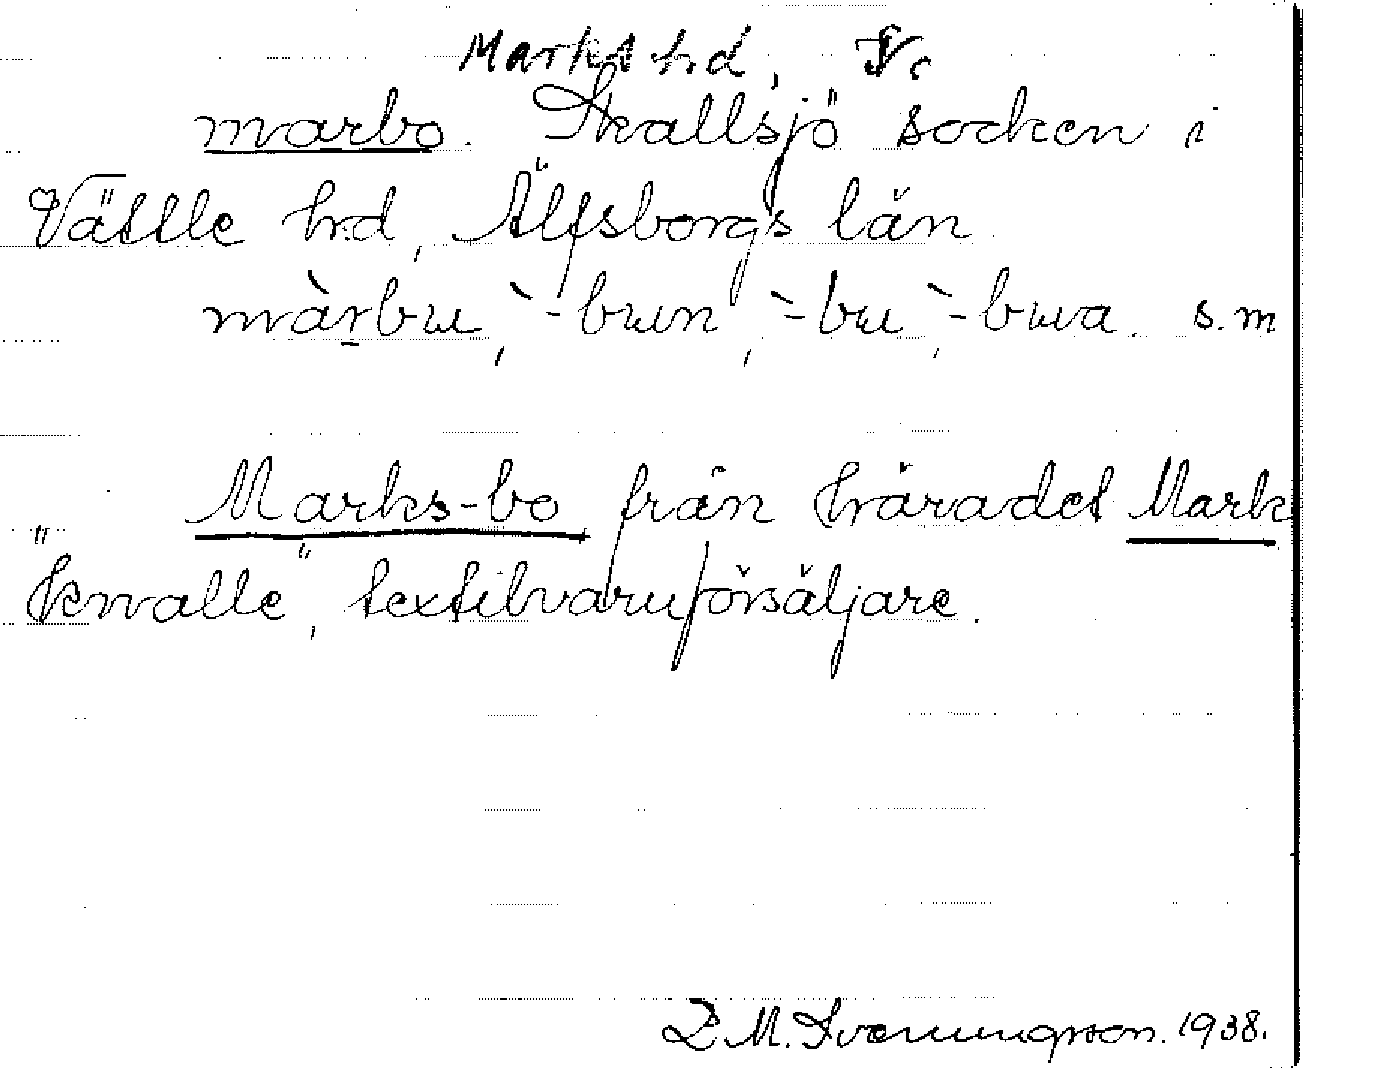 Marks hd, Vg
marbo. Skallsjö socken i
Vättle hd, Älfsborgs län
màrbu, `-bun, `-bu, `-bua. s.m
Marks-bo från häradet Mark
"knalle", textilvaruförsäljare.
M. Svenningsson. 1938.